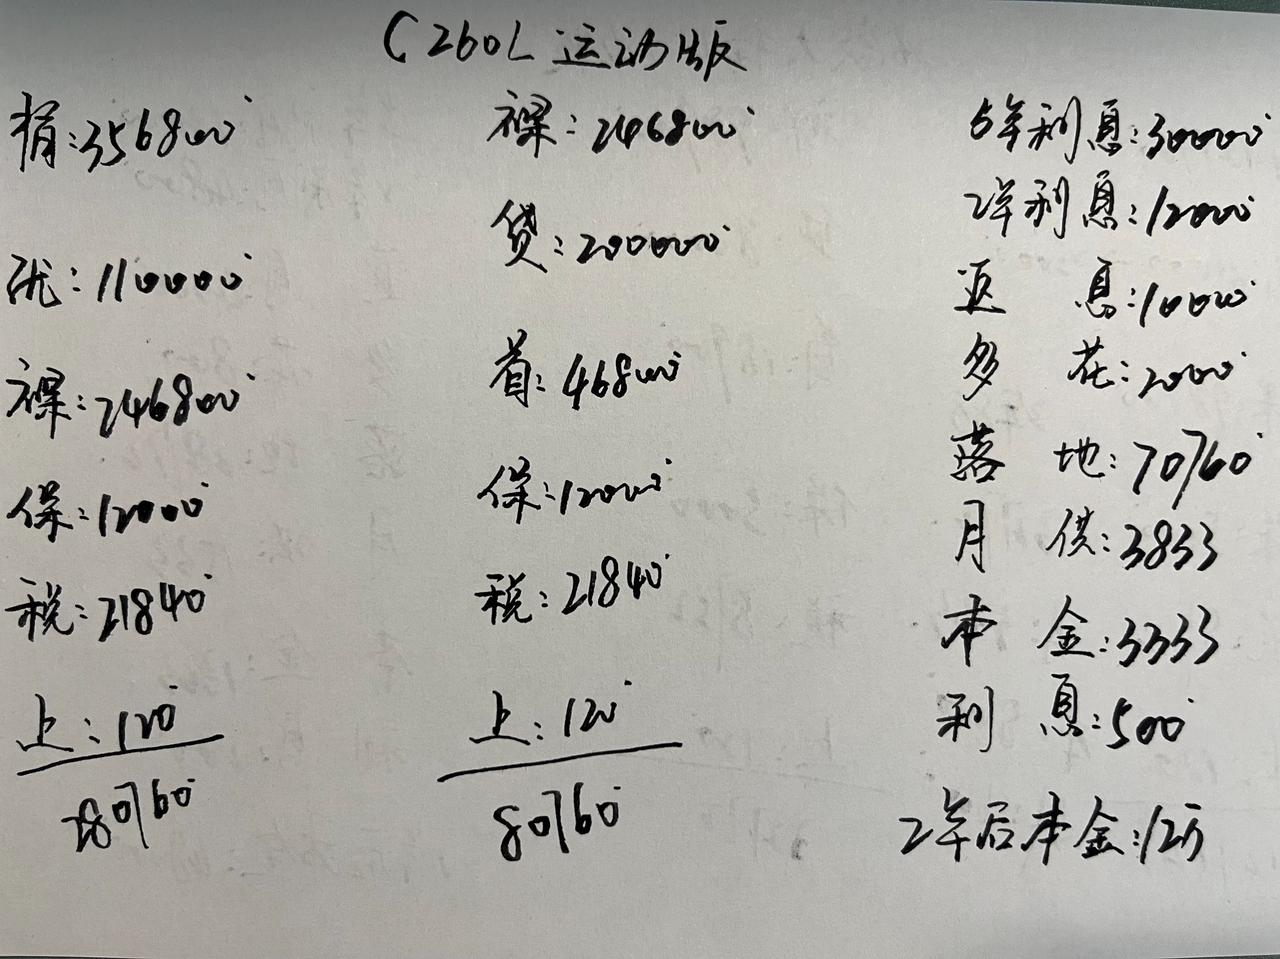 C260L 运动版
指:356800
优:110000
裸:246800
保:12000
税:21840
上:120
280760
裸:246800
贷:200000
首:46800
保:12000
税:21840
上:120
80760
5年利息:30000
2年利息:12000
返息:10000
多花:2000
落地:70760
月供:3833
本金:3333
利息:500
2年后本金:12万